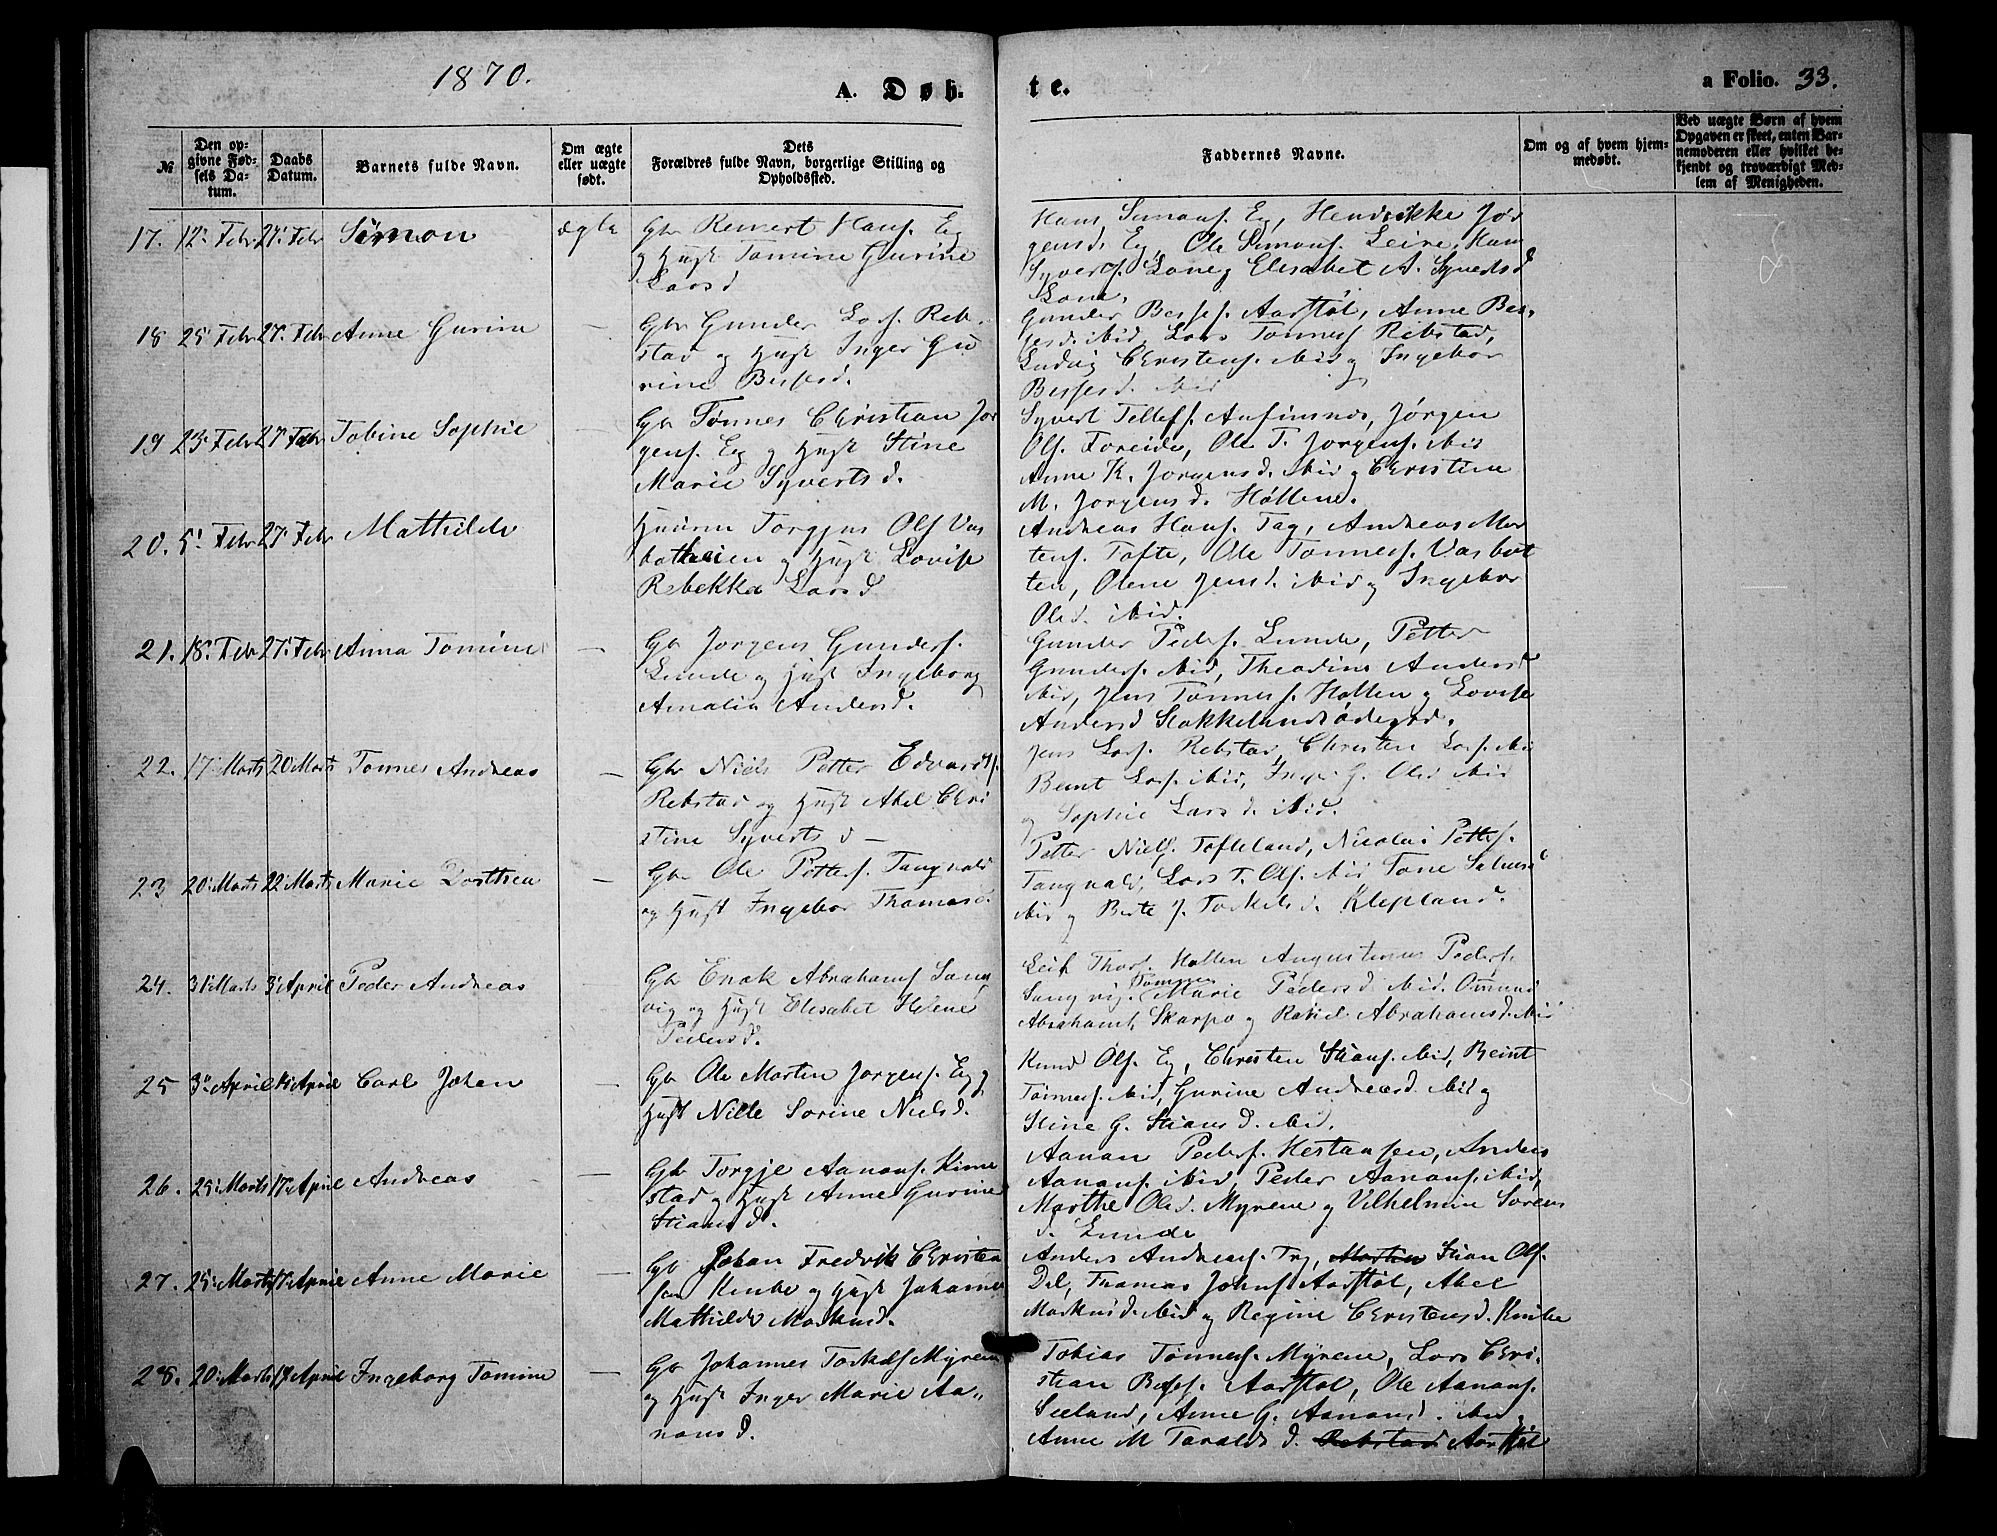 1870.
A. Døb-
te.
a Folio. 33.
№
Den op-
givne Fød-
sels Da-
tum.
Daabs
Datum.
Barnets fulde Navn.
Om ægte
eller uægte
født.
Dets
Forældres fulde Navn, borgerlige Stilling og
Opholdssted.
Faddernes Navne.
Om og af hvem hjem-
medøbt.
Ved uægte Børn af hvem
Opgaven er skeet, enten Bar-
nemoderen eller hvilket be-
kjendt og troværdigt Med-
lem af Menigheden.
17. 12' Febr 27' Febr Simon ægte
Gbr Reinert Hans. Eg
og Hust Tomine Gurine
Larsd
Hans Simons. Eg, Hendrikke Jør
gensd. Eg, Ole Simons. Leire, Hans
Syverts. Lone, Elisabet A. Syvertsd
Lone.
18 25' Febr 27' Febr Anne Gurine —
Gbr Gunder Lars. Reb-
stad og Hust Inger Gu
rine Besfesd.
Gunder Besfes. Aarstøl, Anne Bes-
fesd. ibid, Lars Tønnes. Rebstad,
Ludvig Christens. ibid og Ingebor
Besfesd. ibid
19 23' Febr 27' Febr Tobine Sophie —
Gbr Tønnes Christian Jør
gens. Eg og Hust Stine
Marie Syvertsd.
Syvert Tellefs. Aufinsnes, Jørgen
Ols. Foreide, Ole T. Jørgens. ibid
Anne K. Jørgensd. ibid og Christine
M. Jørgensd. Høllene.
20. 5' Febr 27' Febr Mathilde —
Huusm Torgjus Ols Vas
botheien og Hust Lovise
Rebekka Larsd
Andreas Hans. Tag, Andreas Mor
tens. Tofte, Ole Tønnes. Vasbot
ten, Olene Jensd. ibid og Ingebor
Olsd. ibid.
21. 18' Febr 27' Febr Anna Tomine —
Gbr Jørgen Gunders.
Lunde og Hust Ingeborg
Amalia Andersd.
Gunder Peders. Lunde, Petter
Gunders. ibid, Theodine Andersd
ibid, Jens Tønnes. Holten og Lovise
Andersd Stokkelandsødegrd.
22. 17' Marts 20' Marts Tønnes Andreas —
Gbr Niels Petter Edvards.
Rebstad og Hust Abel Chri
stine Syvertsd —
Jens Lars. Rebstad, Christen Lars. ibid
Bernt Lars. ibid, Inger G. Olsd ibid
og Sophie Larsd. ibid.
23 20' Marts 22' Marts Marie Dorthea —
Gbr Ole Petters. Tangvald
og Hust Ingebor Thomasd.
Petter Niels. Tofteland, Nicolai Petters.
Tangvald, Lars T. Ols. ibid Tone
ibid og Berte J. Torkelsd. Klepland.
24. 31' Marts 3' April Peder Andreas
Gbr Enok Abrahams Sang
vig og Hust Elisabet Helene
Pedersd.
Leif Thors. Holten Augustinus Peders.
Sangvig. Marie Pedersd ibid. Omund
Abrahams. Skarpo og Rakel Abrahamsd. ibid
25 3' April 14' April Carl Johan —
Gbr Ole Martin Jørgens. Eg og
Hust Nille Sørine Nielsd.
Knud Ols. Eg, Christen Stians. ibid, Bernt
Tønnes. ibid, Gurine Andreasd. ibid og
Stine G. Stiansd. ibid.
26. 25' Marts 17' April Andreas —
Gbr Torgje Aanans. Rime
stad og Hust Anne Gurine
Stiansd.
Aanan Peders. Hestaasen, Anders
Aanans. ibid, Peder Aanans. ibid,
Marthe Olsd. Myrene og Vilhelmine Sørens
d. Lunde
27. 25' Marts 17' April Anne Marie —
Gbr Johan Fredrik Christen
sen Knibe og Hust Johanne
Mathilde Markusd.
Anders Andreas. Try, Morten Stian Ols.
Dal, Thomas Johns. Aarstøl, Abel
Markusd. ibid og Regine Christensd. Knibe
28. 20' Marts 17' April Ingeborg Tomine —
Gbr Johannes Torkels Myrene
og Hust Inger Marie Aa-
nansd.
Tobias Tønnes. Myrene, Lars Chri-
stian Besfes. Aarstøl, Ole Aanans.
Seeland, Anne G. Aanansd. ibid og
Anne M Taraldsd. Rebstad Aarstøl